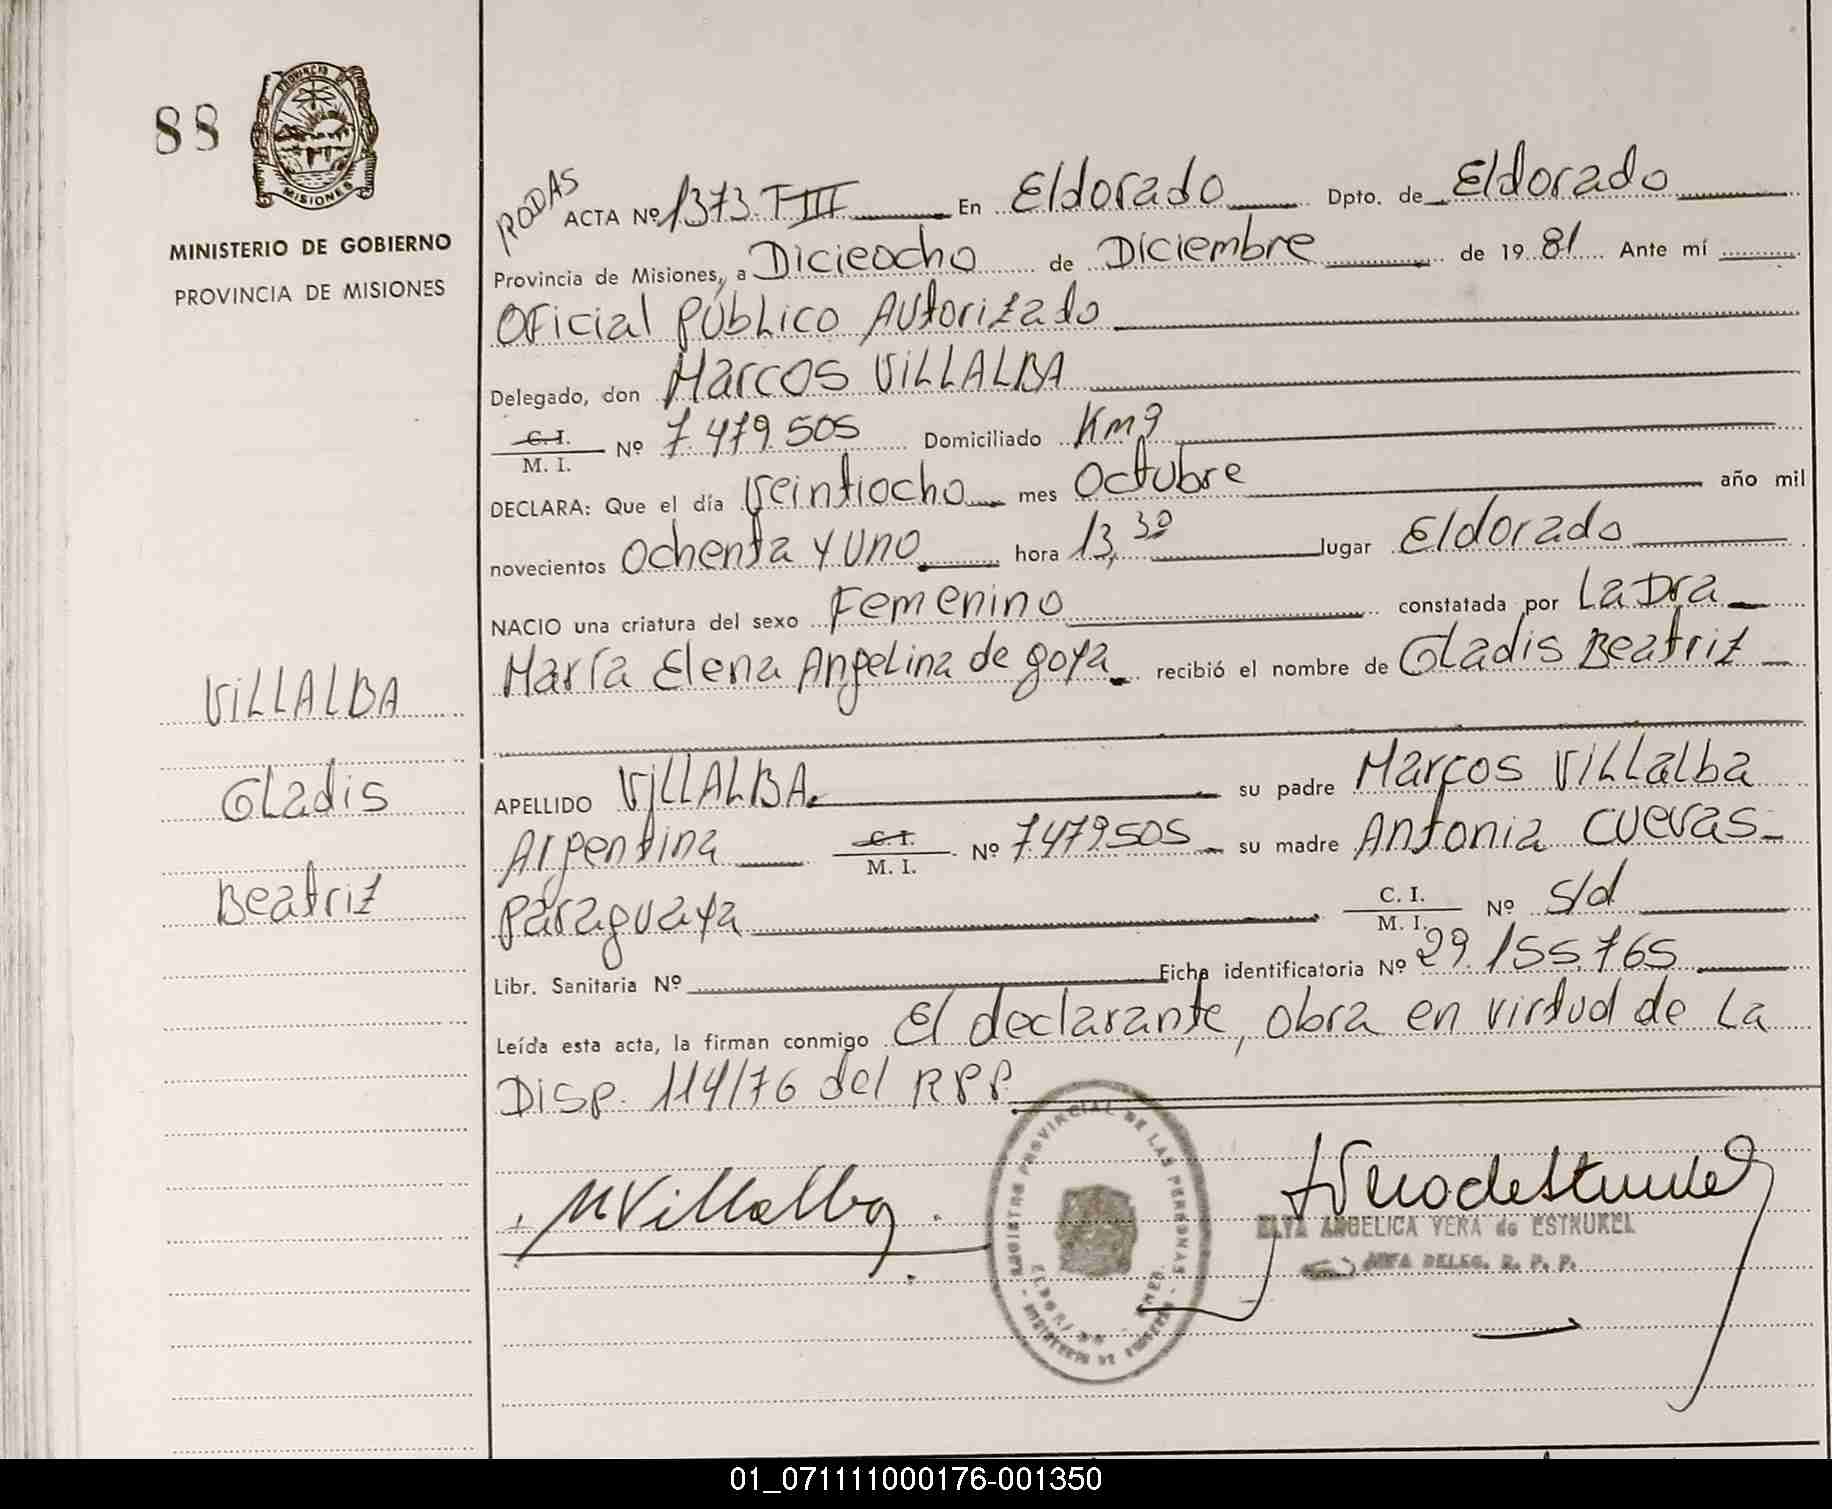 88
PROVINCIA DE
MISIONES
MINISTERIO DE GOBIERNO
PROVINCIA DE MISIONES
VILLALBA
Gladis
Beatriz
RODAS
ACTA Nº 1373 T III En Eldorado Dpto. de Eldorado
Provincia de Misiones, a Dicieocho de Diciembre de 19 81 Ante mí
Oficial Público Autorizado
Delegado, don Marcos VILLALBA
C. I.
M. I. Nº 7.479.505 Domiciliado Km 9
DECLARA: Que el día Veintiocho mes Octubre año mil
novecientos Ochenta y uno hora 13,30 lugar Eldorado
NACIO una criatura del sexo Femenino constatada por La Dra
María Elena Angelina de goya recibió el nombre de Gladis Beatriz
APELLIDO VILLALBA. su padre Marcos Villalba
Argentina C. I. M. I. Nº 7.479.505 su madre Antonia Cuevas
paraguaya C. I. M. I. Nº s/d
Libr. Sanitaria Nº Ficha identificatoria Nº 29.155.765
Leída esta acta, la firman conmigo El declarante, obra en virtud de La
Disp. 114/76 del RPP
MVillalba
REGISTRO PROVINCIAL DE LAS PERSONAS
ANGELICA VERA de ESTRUKEL
DELEG. R. P. P.
01_071111000176-001350